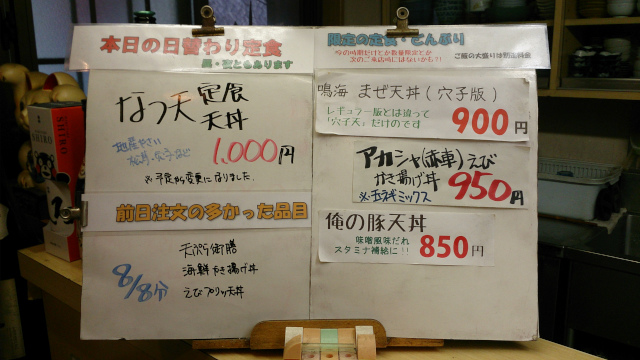 本日の日替わり定食
昼・夜ともあります
なつ天 定食
天丼
地産やさい
1,000円
※予定から変更になりました
前日注文の多かった品目
8/8分
天ぷら御膳
海鮮かき揚げ丼
えびプリッ天丼
限定の定食・どんぶり
今の時期だけとか数量限定とか
次のご来店時にはないかも?!
ご飯の大盛りは別途料金
鳴海 まぜ天丼(穴子版)
レギュラー版とは違って
「穴子天」だけのです
900円
アカシャ(赤車)えび
かき揚げ丼
※玉ネギミックス
950円
俺の豚天丼
味噌風味だれ
スタミナ補給に!!
850円
SHIRO